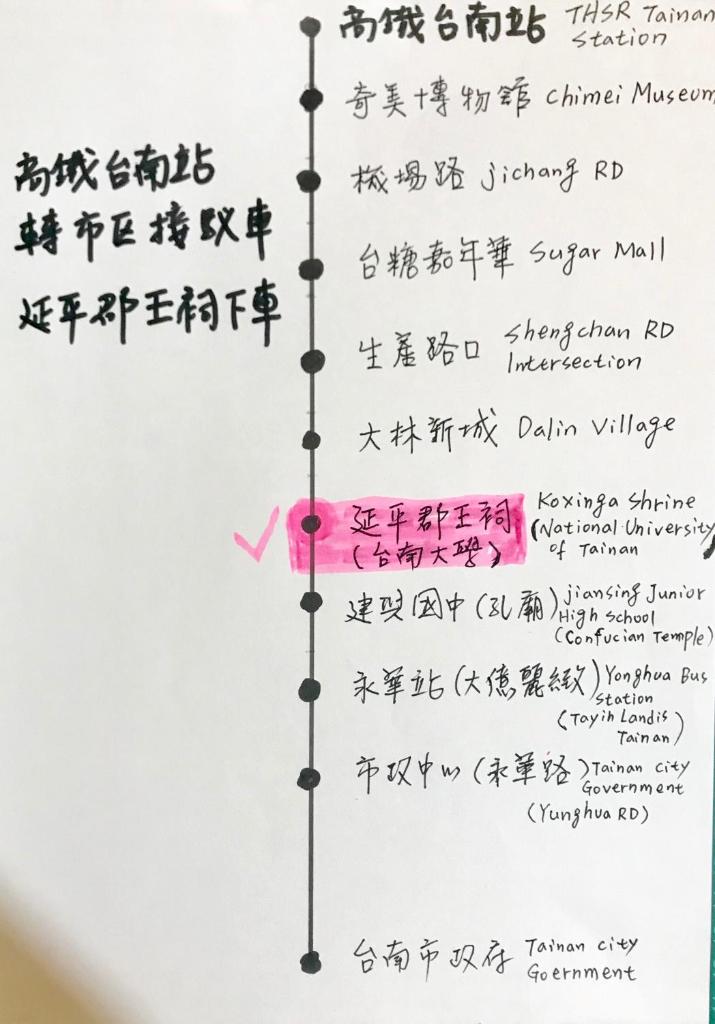 高鐵台南站
轉市区接駁車
延平郡王祠下車
高鐵台南站 THSR Tainan
Station
奇美博物館 Chimei Museum
機場路 jichang RD
台糖嘉年華 Sugar Mall
生產路口 Shengchan RD
Intersection
大林新城 Dalin Village
延平郡王祠 Koxinga Shrine
(台南大學) (National University
of Tainan
建興國中(孔廟) jiansing Junior
High School
(Confucian Temple)
永華站(大億麗緻) Yonghua Bus
Station
(Tayih Landis
Tainan)
市政中心(永華路) Tainan city
Government
(Yunghua RD)
台南市政府 Tainan city
Goernment